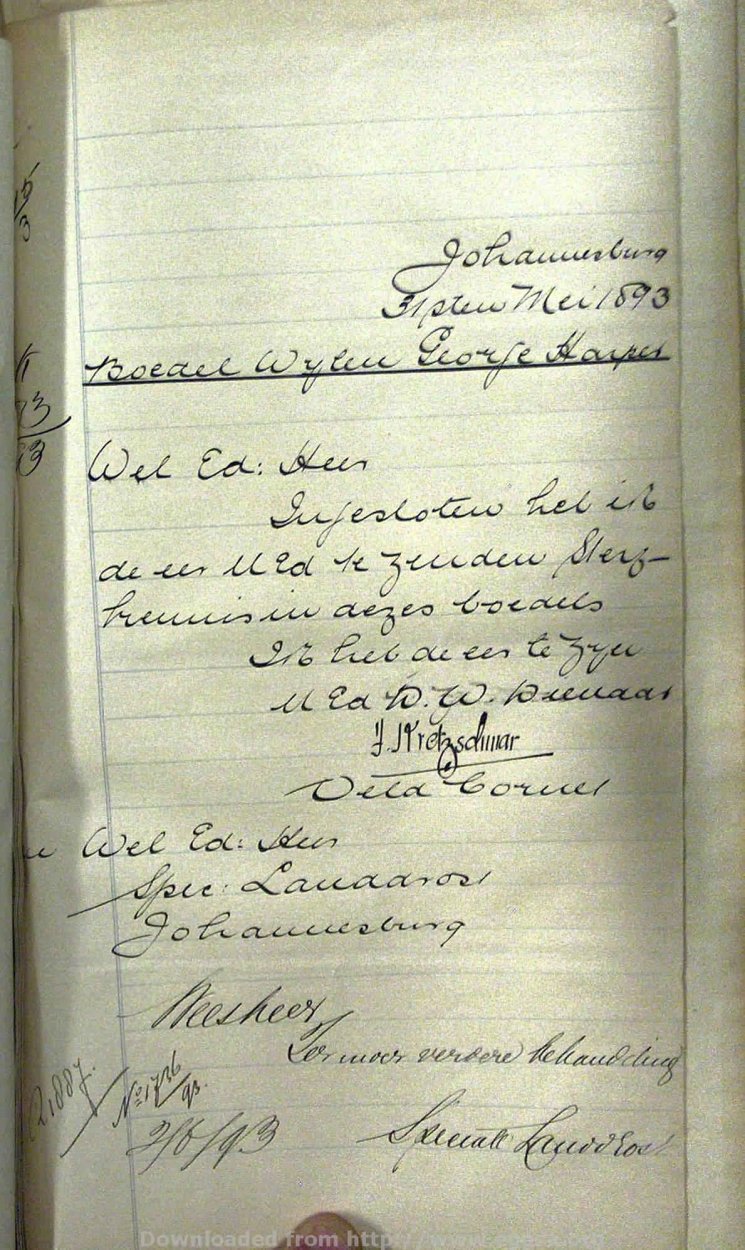 Johannesburg
31sten Mei 1893
Boedel Wylen George Harper
Wel Ed: Heer
Ingesloten heb ik
de eer UEd te zenden Sterf-
kennis in dezes boedels
Ik heb de eer te zyn
UEd D. W. Dienaar
Kretzschmar
Veld Cornet
Wel Ed: Heer
Spec: Landdrost
Johannesburg
Weesheer
Ter verdere behandeling
No 1736/93.
2/6/93
Speciale Landdrost
Downloaded from http://www.